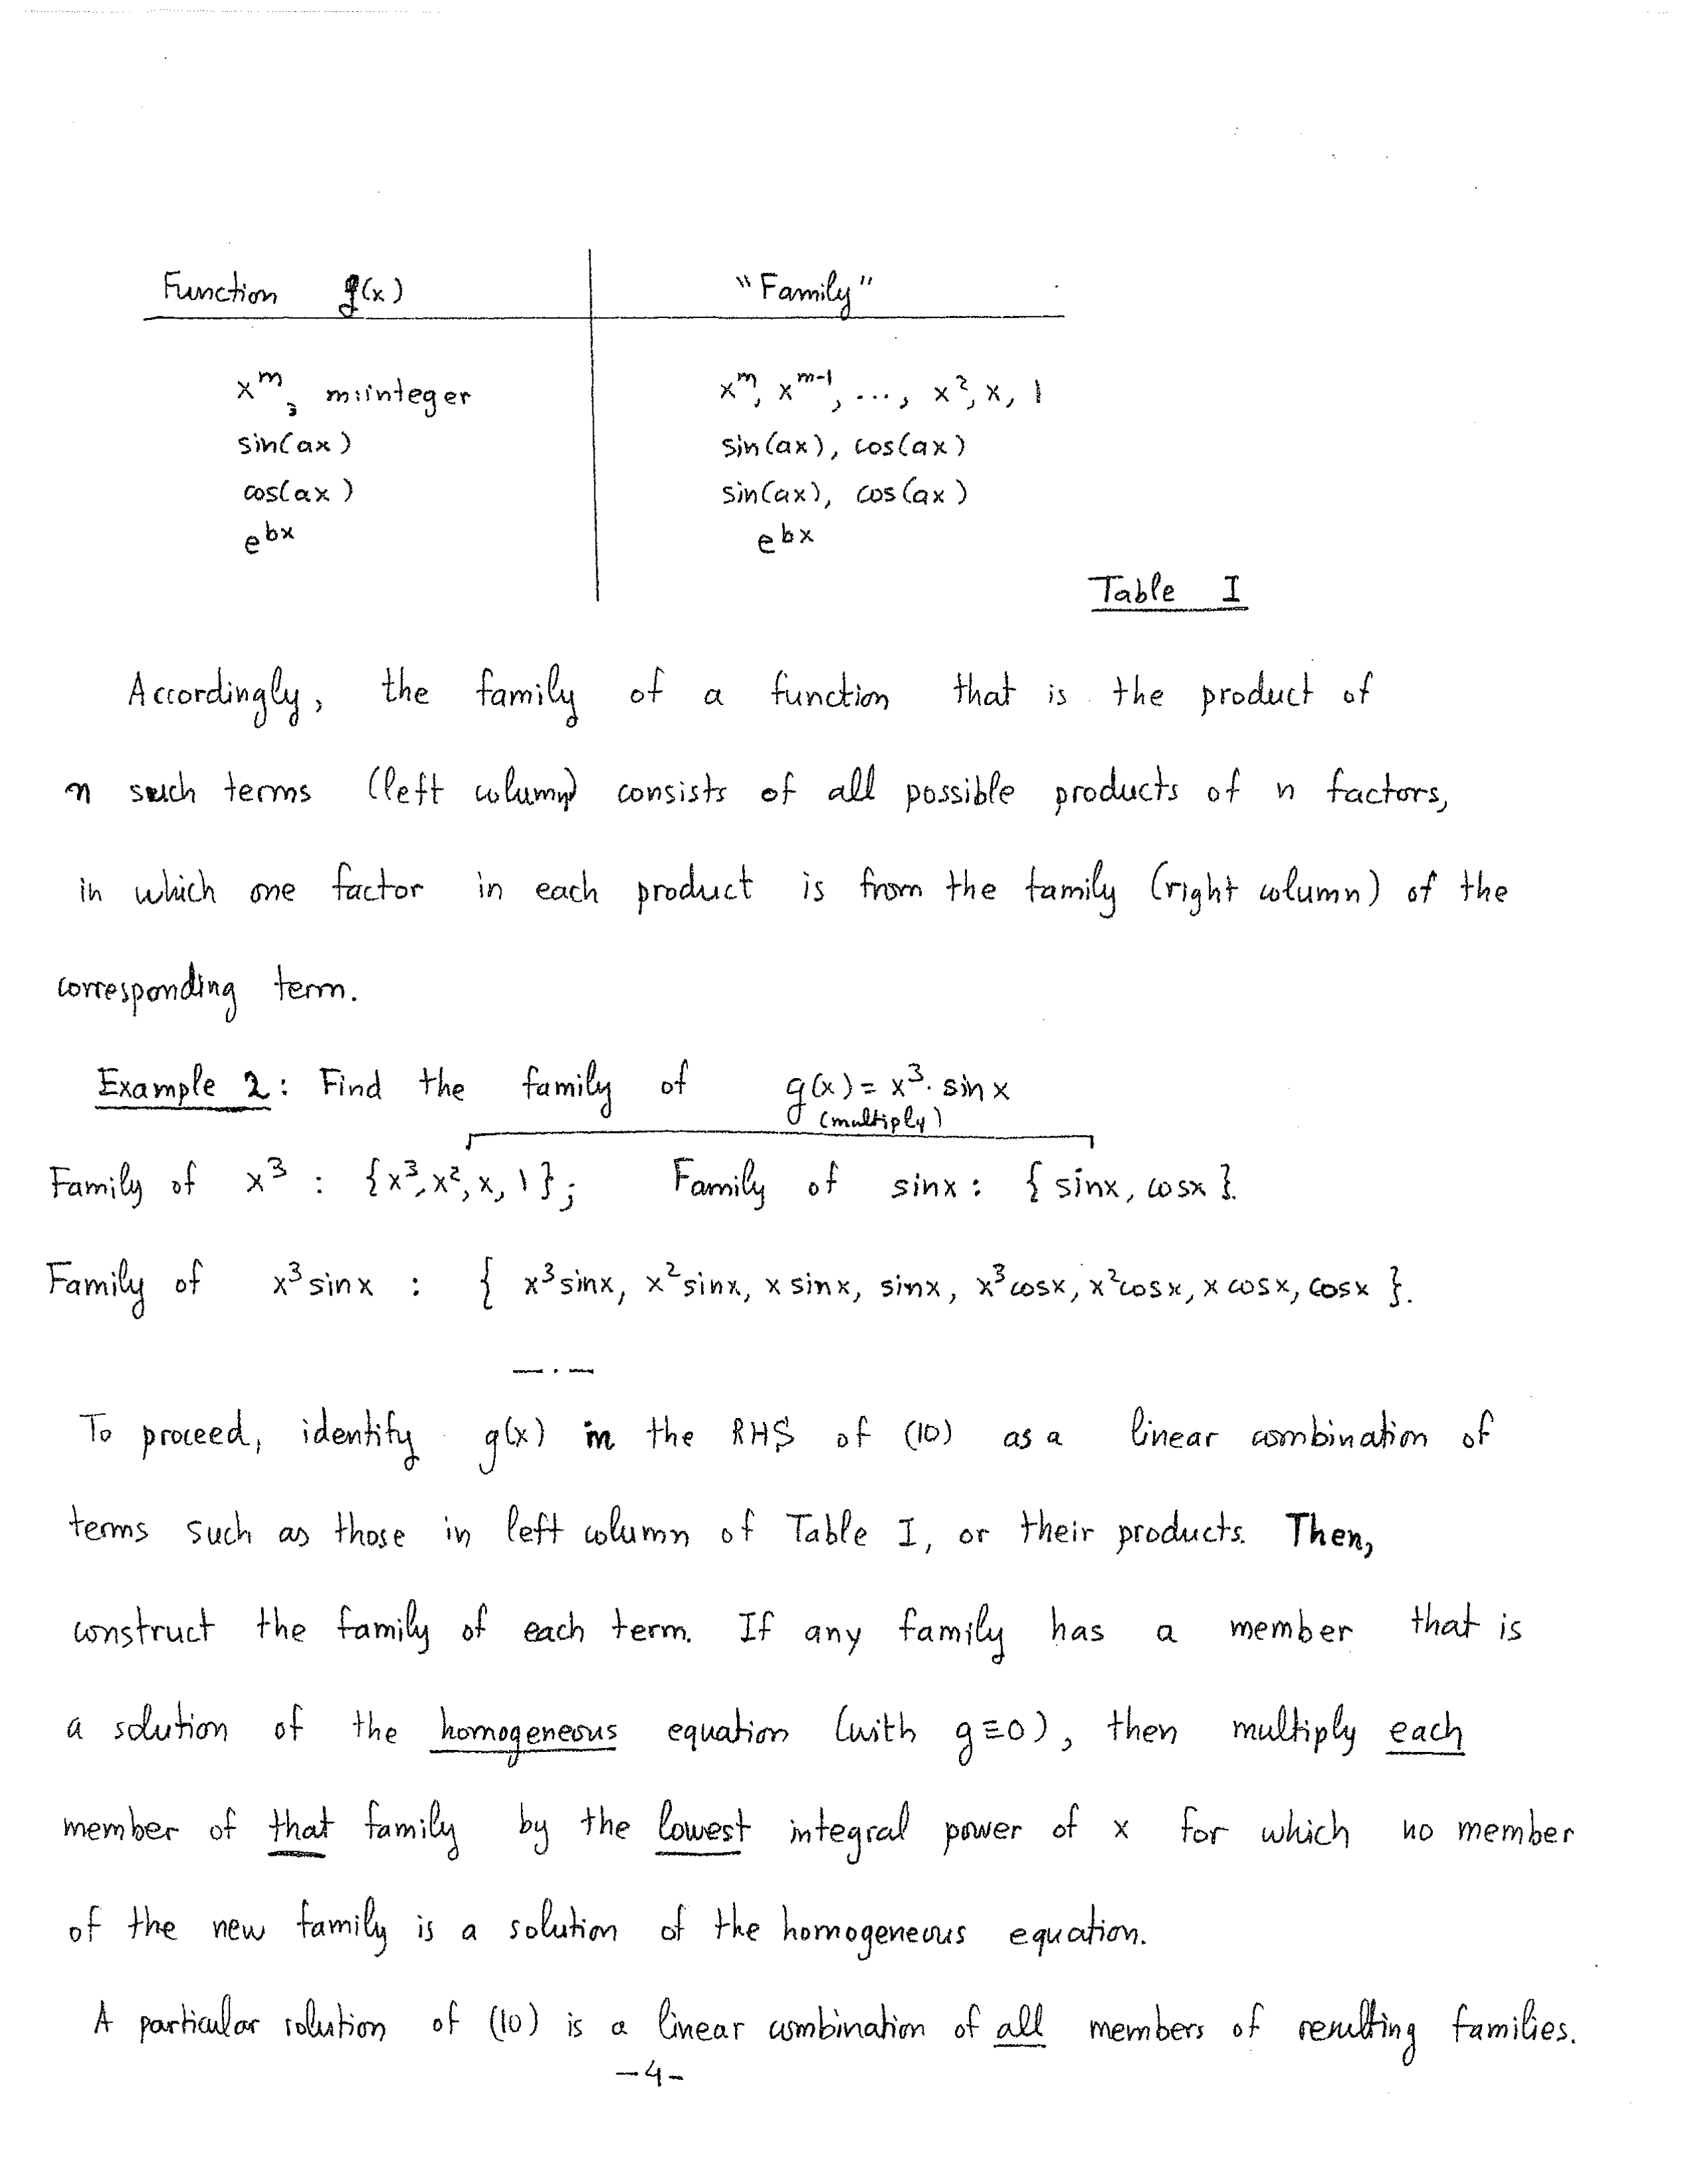 Function g(x) "Family"
xᵐ, m:integer xᵐ, xᵐ⁻¹, ..., x², x, 1
sin(ax) sin(ax), cos(ax)
cos(ax) sin(ax), cos(ax)
eᵇˣ eᵇˣ
Table I
Accordingly, the family of a function that is the product of
n such terms (left column) consists of all possible products of n factors,
in which one factor in each product is from the family (right column) of the
corresponding term.
Example 2: Find the family of g(x) = x³. sin x
(multiply)
Family of x³ : {x³, x², x, 1}; Family of sinx: { sinx, cosx }.
Family of x³ sinx : { x³ sinx, x² sinx, x sinx, sinx, x³ cosx, x² cosx, x cosx, cosx }.
— . —
To proceed, identify g(x) in the RHS of (10) as a linear combination of
terms such as those in left column of Table I, or their products. Then,
construct the family of each term. If any family has a member that is
a solution of the homogeneous equation (with g≡0), then multiply each
member of that family by the lowest integral power of x for which no member
of the new family is a solution of the homogeneous equation.
A particular solution of (10) is a linear combination of all members of resulting families.
-4-